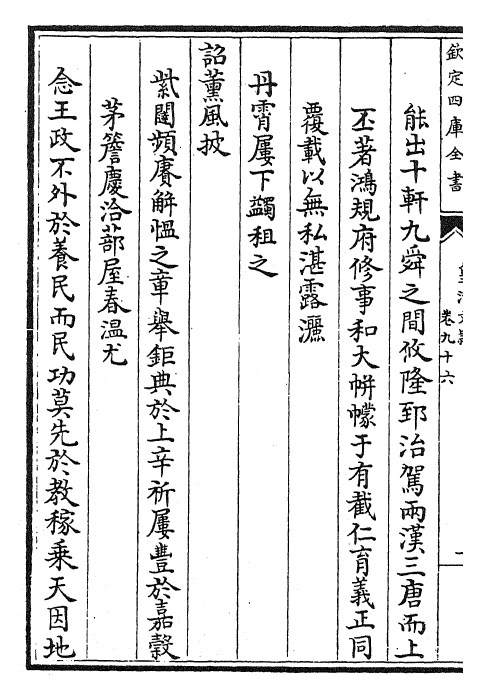 欽定四庫全書
卷九十六
能出十軒九舜之間攸隆郅治駕兩漢三唐而上
丕著鴻規府修事和大帡幪于有截仁育義正同
覆載以無私湛露灑
丹霄屢下蠲租之
詔薰風披
紫闥頻賡解慍之章舉鉅典於上辛祈屢豐於嘉穀
茅簷慶洽蔀屋春温尤
念王政不外於養民而民功莫先於教稼乘天因地